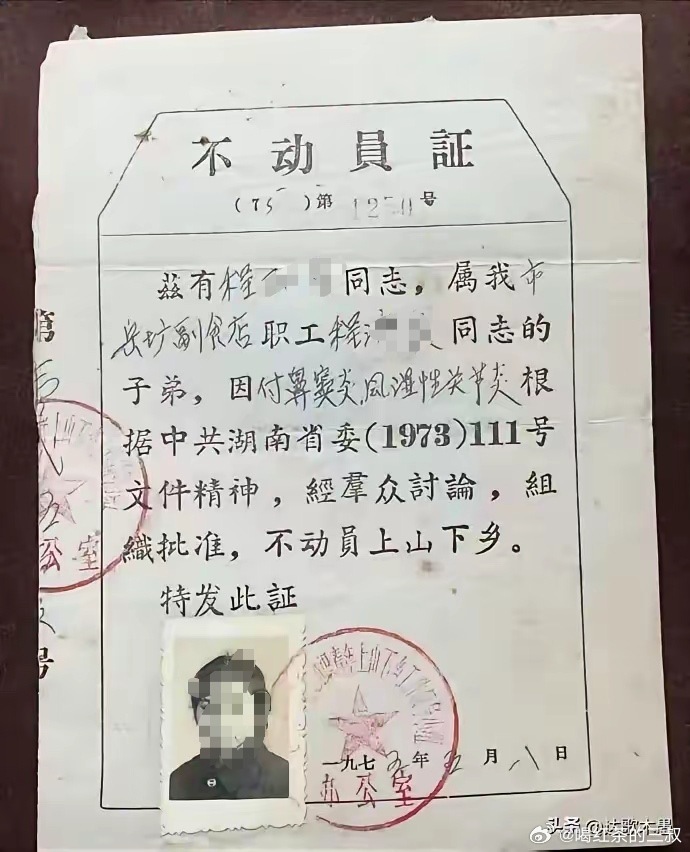 不动員証
(75)第1250号
茲有程同志，属我市
长圹副食店职工程同志的
子弟，因付鼻窦炎、風湿性关节炎根
据中共湖南省委(1973)111号
文件精神，經羣众討論，組
織批准，不动員上山下乡。
特发此証
一九七五年五月八日
办公室
第
五
公室
号
头条
@喝红茶的三叔